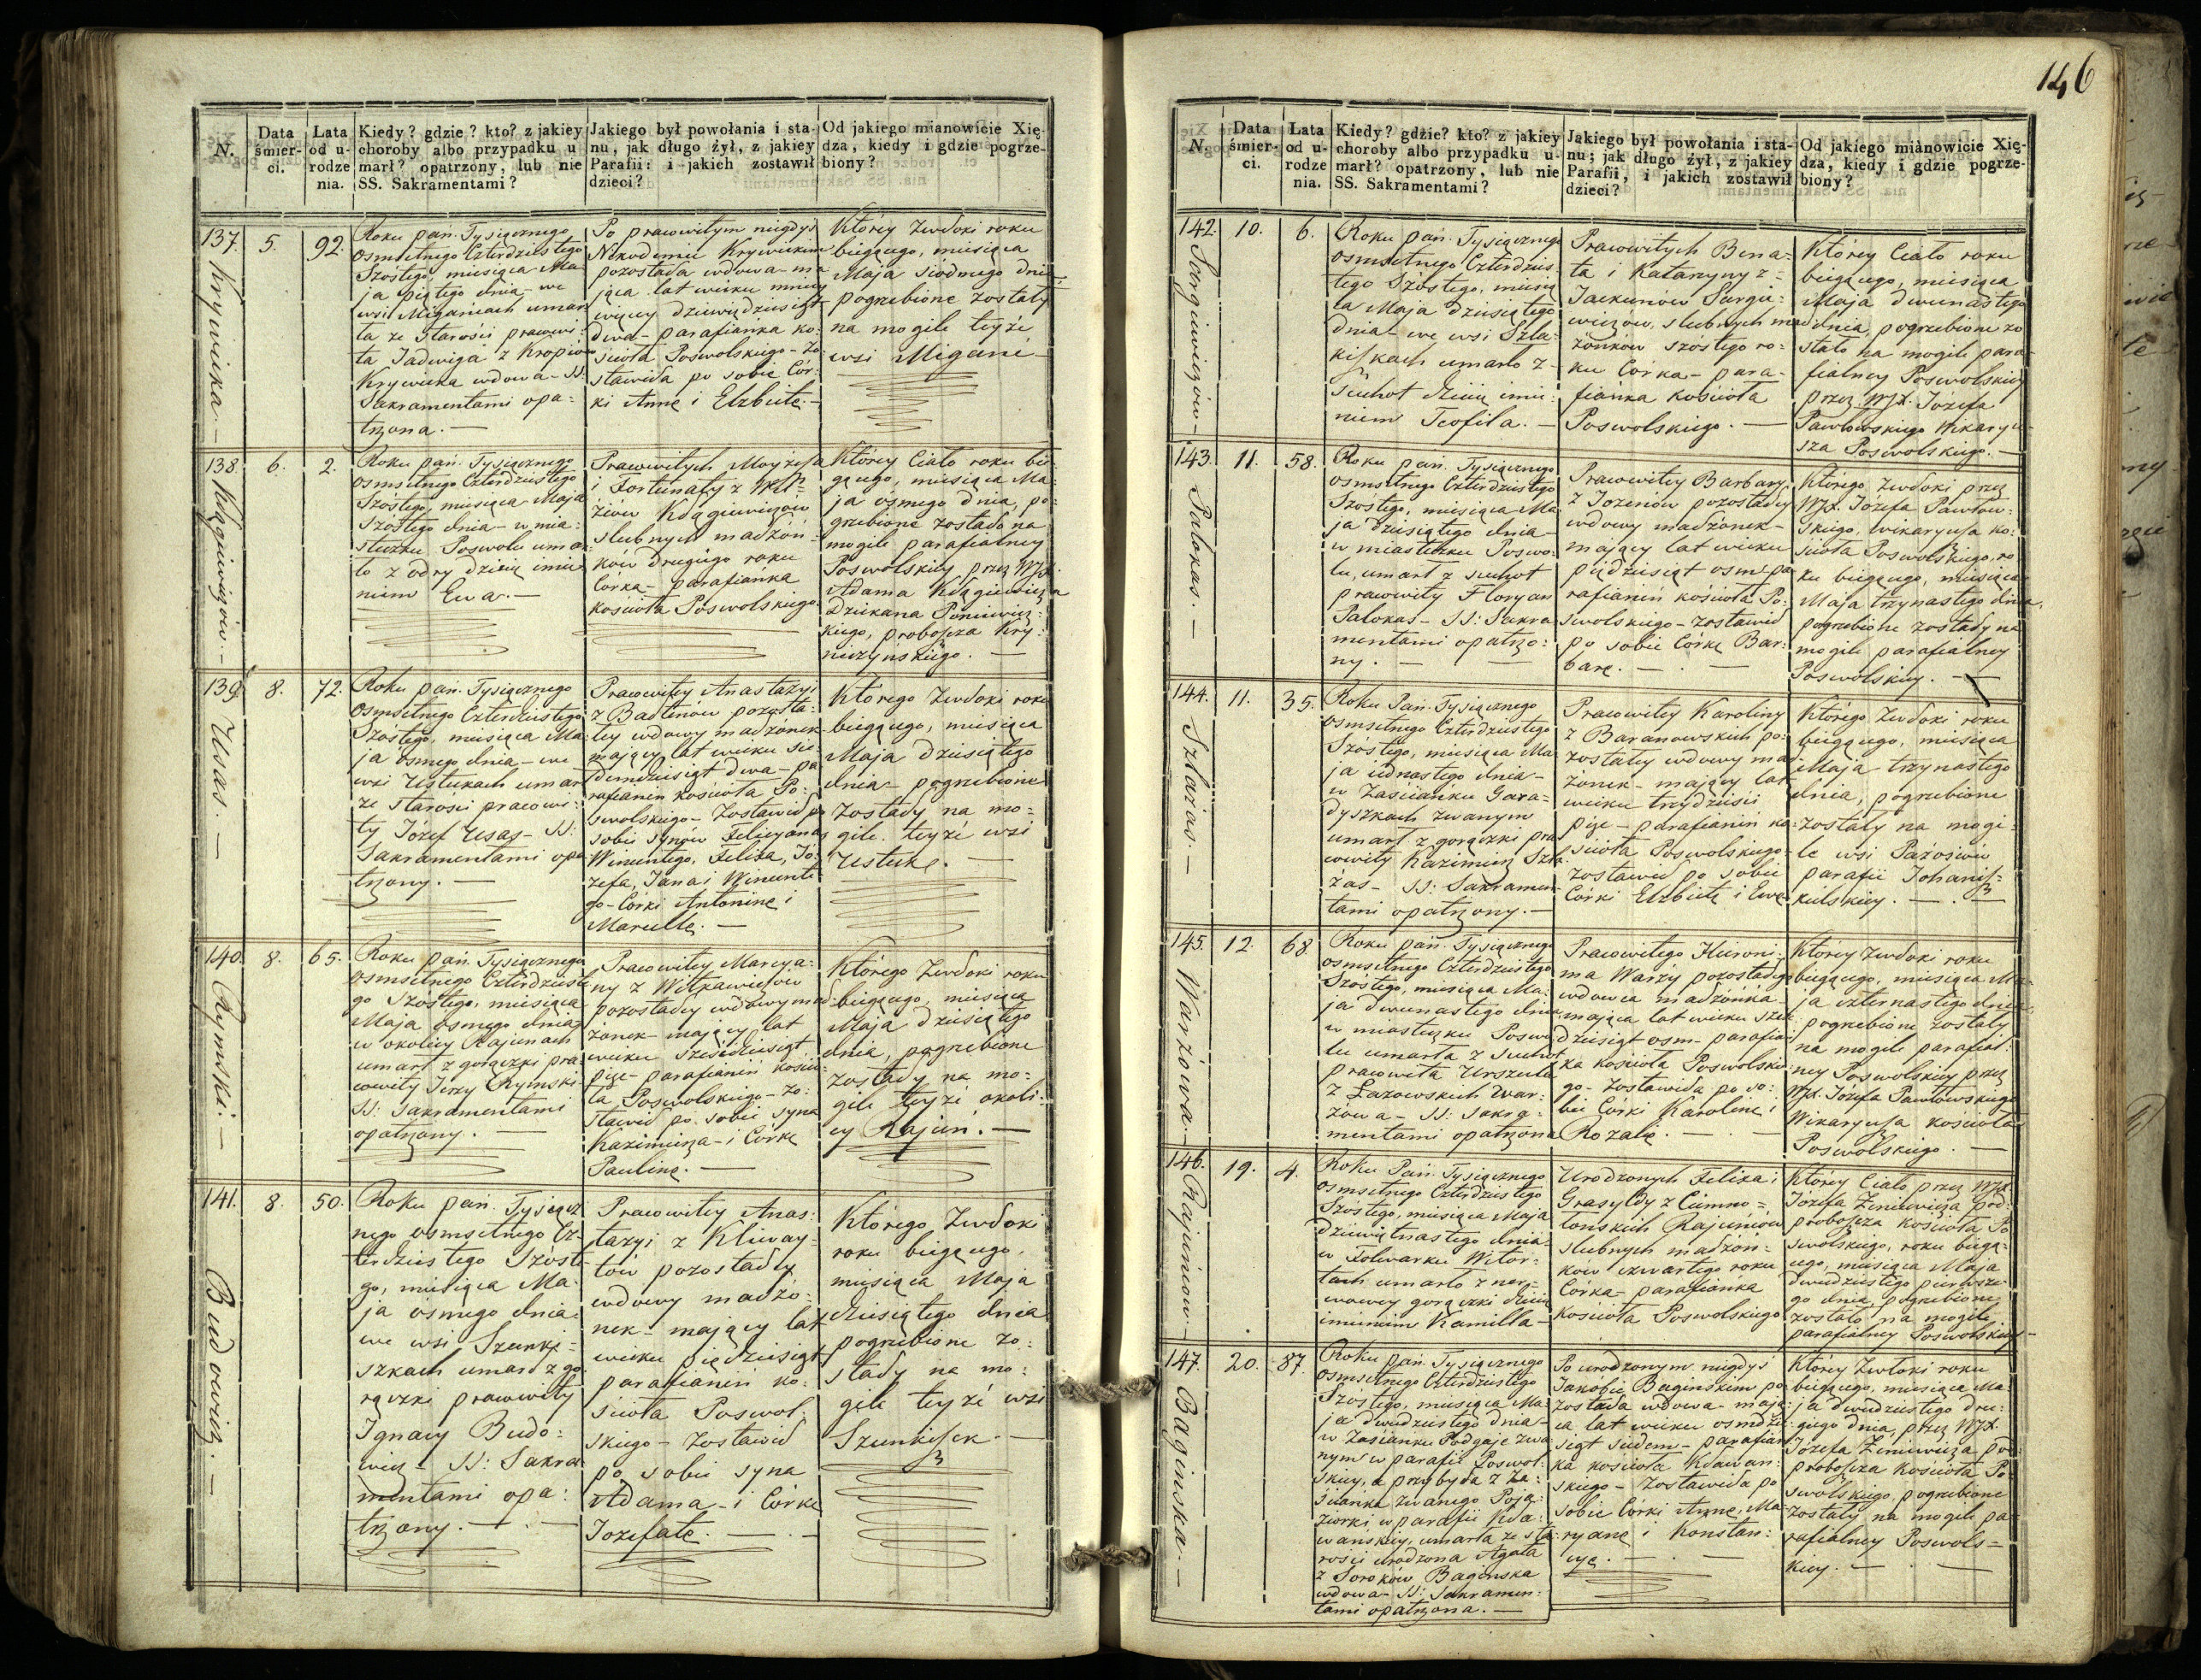 146
N.
Data śmier- ci.
Lata od u- rodze nia.
Kiedy? gdzie? kto? z jakiey
choroby albo przypadku u
marł? opatrzony, lub nie
SS. Sakramentami?
Jakiego był powołania i sta-
nu, jak długo żył, z jakiey
Parafii: i jakich zostawił
dzieci?
Od jakiego mianowicie Xię-
dza, kiedy i gdzie pogrze-
biony?
137. Krywicka.
5.
92.
Roku pań. Tysiącznego
Osmsetnego Czterdziestego
Szóstego, miesiąca Ma-
ja piątego dnia - we
wsi Miganiach umar-
ła ze starości pracowi-
ta Jadwiga z
Krywicka wdowa - SS:
Sakramentami opa-
trzona. -
Po pracowitym niegdyś
Nikodemie Krywickim
pozostała wdowa - ma
jąca lat wieku mniey
więcey dziewięćdziesiąt
dwa - parafianka ko-
ścioła Poswolskiego - zo-
stawiła po sobie Cór-
ki Annę i Elżbietę. -
Którey Zwłoki roku
biegącego, miesiąca
Maja siódmego dnia
pogrzebione zostały
na mogile teyże
wsi Migani -
138. Kłągiewiczów. -
6.
2.
Roku pań. Tysiącznego
osmsetnego Czterdziestego
Szóstego, miesiąca Maja
Szóstego dnia - w mia-
steczku Poswolu umar-
ło z odry dziecię imie
niem Ewa. -
Pracowitych Moyżesza
i Fortunaty z
Kłągiewiczów
ślubnych małżon-
ków drugiego roku
Córka - parafianka
kościoła Poswolskiego.
Którey Ciało roku bie-
gącego, miesiąca Ma-
ja ósmego dnia, po-
grzebione zostało na
mogile parafialney
Poswolskiey przez WJX.
Adama Kłągiewicza
Dziekana Poniewiez-
kiego, proboszcza Kry-
niczyńskiego. -
139. Usas. -
8.
72.
Roku pań. Tysiącznego
Osmsetnego Czterdziestego
Szóstego, miesiąca Ma-
ja ósmego dnia - we
wsi Ustukach umarł
ze starości pracowi-
ty Józef Usas - SS:
Sakramentami opa-
trzony. -
Pracowitey Anastazyi
z Badlinów pozosta-
ley wdowy małżonek
mający lat wieku sie-
demdziesiąt dwa - pa
rafianin kościoła Po-
swolskiego - Zostawił po
sobie synów Felicyana,
Wincentego, Felixa, Jó-
zefa, Jana i Wincente
go - Córki Antoninę i
Marcellę. -
Którego Zwłoki roku
biegącego, miesiąca
Maja dziesiątego
dnia - pogrzebione
Zostały na mo-
gile teyże wsi
Ustukę. -
140. Rymski. -
8.
65.
Roku pań. Tysiącznego
Osmsetnego Czterdzieste
go Szóstego, miesiąca
Maja ósmego dnia
w okolicy Rajunach
umarł z gorączki pra
cowity Jerzy Rymski
SS: Sakramentami
opatrzony. -
Pracowitey Marcya-
ny z Witkiewiczów
pozostałey wdowy mał
żonek - mający lat
wieku sześćdziesiąt
pięc - parafianin kościo-
ła Poswolskiego - Zo-
stawił po sobie syna
Kazimierza - i Córkę
Paulinę. -
Którego Zwłoki roku
biegącego, miesiąca
Maja dziesiątego
dnia, pogrzebione
zostały na mo-
gile teyże okoli-
cy Rajun. -
141. Budowicz. -
8.
50.
Roku pań. Tysiącz
nego osmsetnego Cz-
terdziestego Szóste-
go, miesiąca Ma-
ja ósmego dnia -
we wsi Szunki-
szkach umarł z go-
rączki pracowity
Ignacy Budo-
wicz - SS: Sakra-
mentami opa-
trzony. -
Pracowitey Anas-
tazyi z
pozostałey
wdowy małżo-
nek - mający lat
wieku pięćdziesiąt
parafianin ko-
ścioła Poswol-
skiego - zostawił
po sobie syna
Adama - i Córkę
Jozefatę. -
Którego Zwłoki
roku biegącego,
miesiąca Maja
dziesiątego dnia
pogrzebione zo-
stały na mo-
gile teyże wsi
Szunkiszek. -
N.
Data śmier- ci.
Lata od u- rodze nia.
Kiedy? gdzie? kto? z jakiey
choroby albo przypadku u-
marł? opatrzony, lub nie
SS. Sakramentami?
Jakiego był powołania i sta-
nu; jak długo żył, z jakiey
Parafii, i jakich zostawił
dzieci?
Od jakiego mianowicie Xię-
dza, kiedy i gdzie pogrze-
biony?
142. Sargiewiczów -
10.
6.
Roku pań. Tysiącznego
osmsetnego Czterdzies-
tego Szóstego, miesią
ca Maja dziesiątego
dnia - we wsi Szla-
kiszkach umarło z
suchot dziecię imie-
niem Teofila. -
Pracowitych Bena-
ta i Katarzyny z
Jackunów Sargie-
wiczów, ślubnych mał
żonków szóstego ro-
ku Córka - para-
fianka kościoła
Poswolskiego. -
Którey Ciało roku
biegącego, miesiąca
Maja dwunastego
dnia, pogrzebione zo
stało na mogile para-
fialney Poswolskiey
przez WJX. Józefa
Pawłowskiego Wikaryu
sza Poswolskiego. -
143. Patokas. -
11.
58.
Roku pań. Tysiącznego
osmsetnego Czterdziestego
Szóstego, miesiąca Ma
ja dziesiątego dnia -
w miasteczku Poswo-
lu, umarł z suchot
pracowity Floryan
Patokas - SS: Sakra
mentami opatrzo-
ny. -
Pracowitey Barbary
z Jozenów pozostałey
wdowy małżonek -
mający lat wieku
pięćdziesiąt osm - pa
rafianin kościoła Po-
swolskiego - zostawił
po sobie Córkę Bar-
barę. -
Którego Zwłoki przez
WJX. Józefa Pawłow-
skiego, Wikaryusza ko-
ścioła Poswolskiego, ro
ku biegącego, miesiąca
Maja trzynastego dnia,
pogrzebione zostały na
mogile parafialney
Poswolskiey. -
144. Szłażas. -
11.
35.
Roku Pań. Tysiącznego
osmsetnego Czterdziestego
Szóstego, miesiąca Ma
ja iednastego dnia -
w Zaścianku Gara-
dyszkach zwanym
umarł z gorączki pra
cowity Kazimierz Szła
żas - SS: Sakramen-
tami opatrzony. -
Pracowitey Karoliny
z Baranowskich po-
zostałey wdowy mał
żonek - mający lat
wieku trzydzieści
pięc - parafianin ko-
ścioła Poswolskiego
zostawił po sobie
Córki Elżbietę i Ewę
Którego Zwłoki roku
biegącego, miesiąca
Maja trzynastego
dnia, pogrzebione
zostały na mogi-
le wsi
parafii Johanisz-
kielskiey. -
145. Warżowa. -
12.
68.
Roku pań. Tysiącznego
osmsetnego Czterdziestego
Szóstego, miesiąca Ma-
ja dwunastego dnia
w miasteczku Poswo
lu umarła z suchot
pracowita Urszula
z Łazowskich War-
żowa - SS: Sakra-
mentami opatrzona
Pracowitego Hieroni-
ma Warży pozostałego
wdowca małżonka -
mająca lat wieku sześć
dziesiąt osm - parafian
ka kościoła Poswolskie
go - zostawiła po so-
bie Córki Karolinę i
Rozalię. -
Którey Zwłoki roku
biegącego, miesiąca Ma-
ja czternastego dnia
pogrzebione zostały
na mogile parafial-
ney Poswolskiey przez
WJX. Józefa Pawłowskiego
Wikaryusza kościoła
Poswolskiego. -
146. Rajuniów -
19.
4.
Roku Pań. Tysiącznego
osmsetnego Czterdziestego
Szóstego, miesiąca Maja
dziewiętnastego dnia -
w Folwarku Witor-
tach umarło z ner-
wowey gorączki dziecię
imieniem Kamilla -
Urodzonych Felixa i
Grasyldy z Ciemno-
łońskich Rajuniów
ślubnych małżon-
ków czwartego roku
Córka - parafianka
kościoła Poswolskiego
Którey Ciało przez WJX.
Józefa Zieniewicza pod-
probosza kościoła Po
swolskiego, roku biegą-
cego, miesiąca Maja
dwudziestego pierwsze-
go dnia, pogrzebione
zostało na mogile
parafialney Poswolskiey -
147. Baginska. -
20.
87.
Roku pań. Tysiącznego
osmsetnego Czterdziestego
Szóstego, miesiąca Ma-
ja dwudziestego dnia -
w Zaścianku Podgaje zwa-
nym w parafii Poswol-
skiey, a przybyła z Za-
ścianku zwanego Poją-
ziorki w parafii Kła-
wańskiey, umarła ze sta-
rości urodzona Agata
z Soroków Baginska
wdowa - SS: Sakramen-
tami opatrzona. -
Po urodzonym niegdyś
Jakobie Baginskim po-
zostala wdowa - mają-
ca lat wieku osmdzie-
siąt siedem - parafian
ka kościoła Kławań-
skiego - Zostawiła po
sobie Córki Annę, Ma-
ryanę i Konstan-
cyę. -
Którey Zwłoki roku
biegącego, miesiąca Ma-
ja dwudziestego dru-
giego dnia, przez WJX.
Józefa Zieniewicza pod
probosza Kościoła Po-
swolskiego, pogrzebione
zostały na mogile pa-
rafialney Poswols-
kiey. -